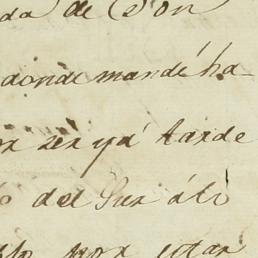 da de Don
donde mandé ha-
or ser ya tarde
del Sur á
por estar